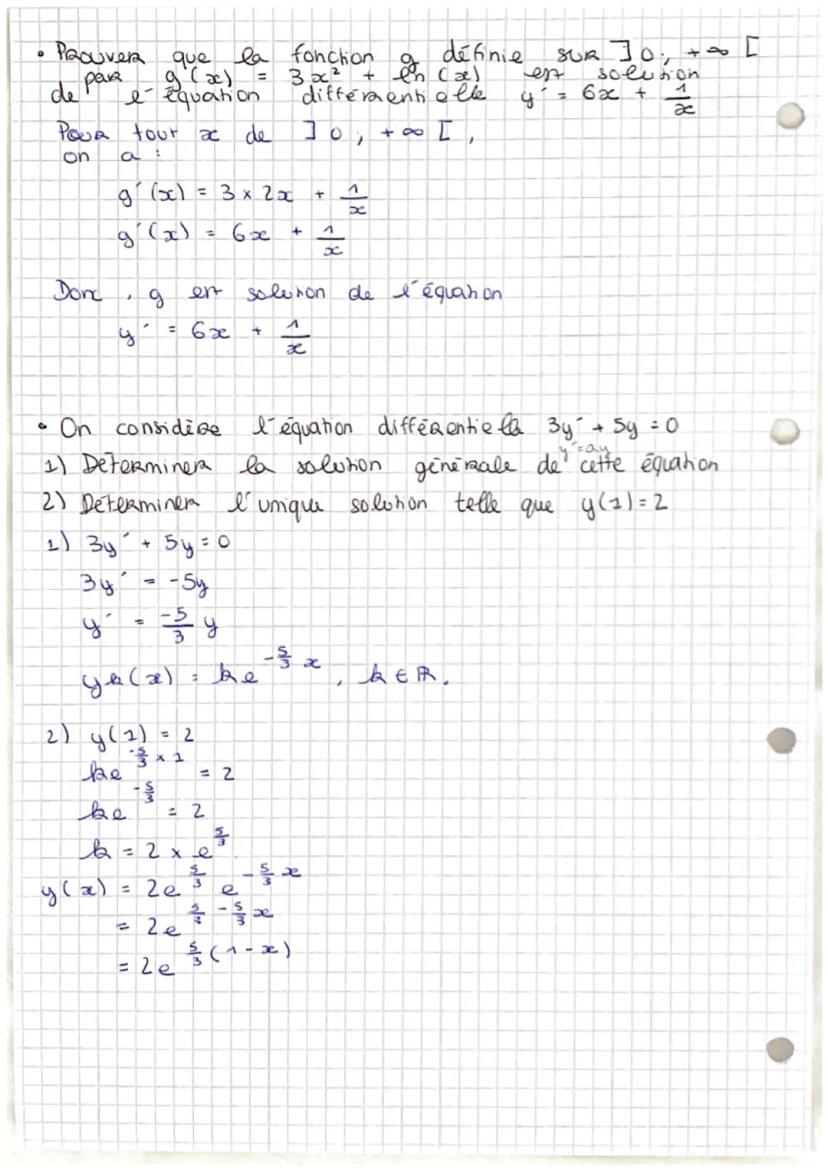 • Prouver que la fonction g définie sur ]0; +∞[
par g'(x) = 3x² + ln(x) est solution
de l'équation différentielle y' = 6x + 1/x
Pour tout x de ]0; +∞[,
on a :
g'(x) = 3 × 2x + 1/x
g'(x) = 6x + 1/x
Donc, g est solution de l'équation
y' = 6x + 1/x
• On considère l'équation différentiella 3y' + 5y = 0
y'=ay
1) Determiner la solution générale de cette équation
2) Determiner l'unique solution telle que y(1)=2
1) 3y' + 5y = 0
3y' = -5y
y' = -5/3 y
yk(x) = ke^(-5/3 x), k ∈ ℝ.
2) y(1) = 2
ke^(-5/3 × 1) = 2
ke^(-5/3) = 2
k = 2 × e^(5/3)
y(x) = 2e^(5/3) e^(-5/3 x)
= 2e^(5/3 - 5/3 x)
= 2e^(5/3 (1-x))